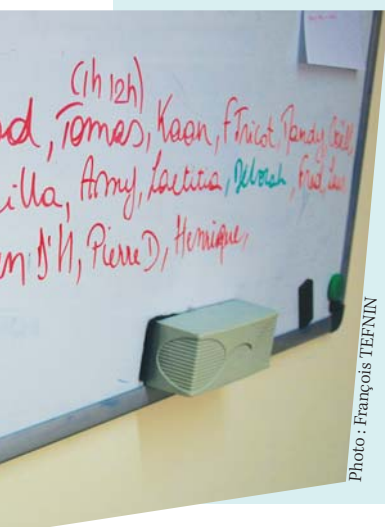 (1h 12h)
Tomas, Kaan, F Tricot,
illa, Amy, Laetitia, Déborah, Fred,
Pierre D, Henrique,
Photo : François TEFNIN